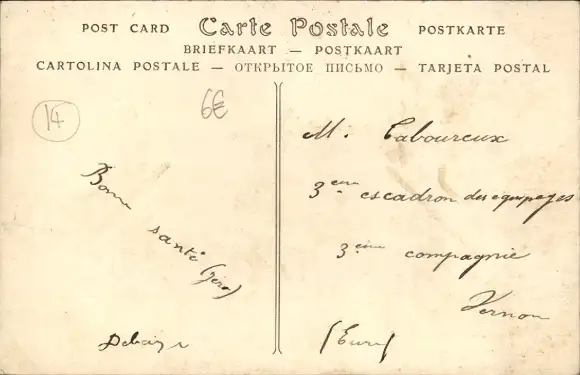 POST CARD Carte Postale POSTKARTE
BRIEFKAART — POSTKAART
CARTOLINA POSTALE — ОТКРЫТОЕ ПИСЬМО — TARJETA POSTAL
14
6€
Bonne santé
M. Taboureux
3ème escadron des équipages
3ème compagnie
Vernon
(Eure)